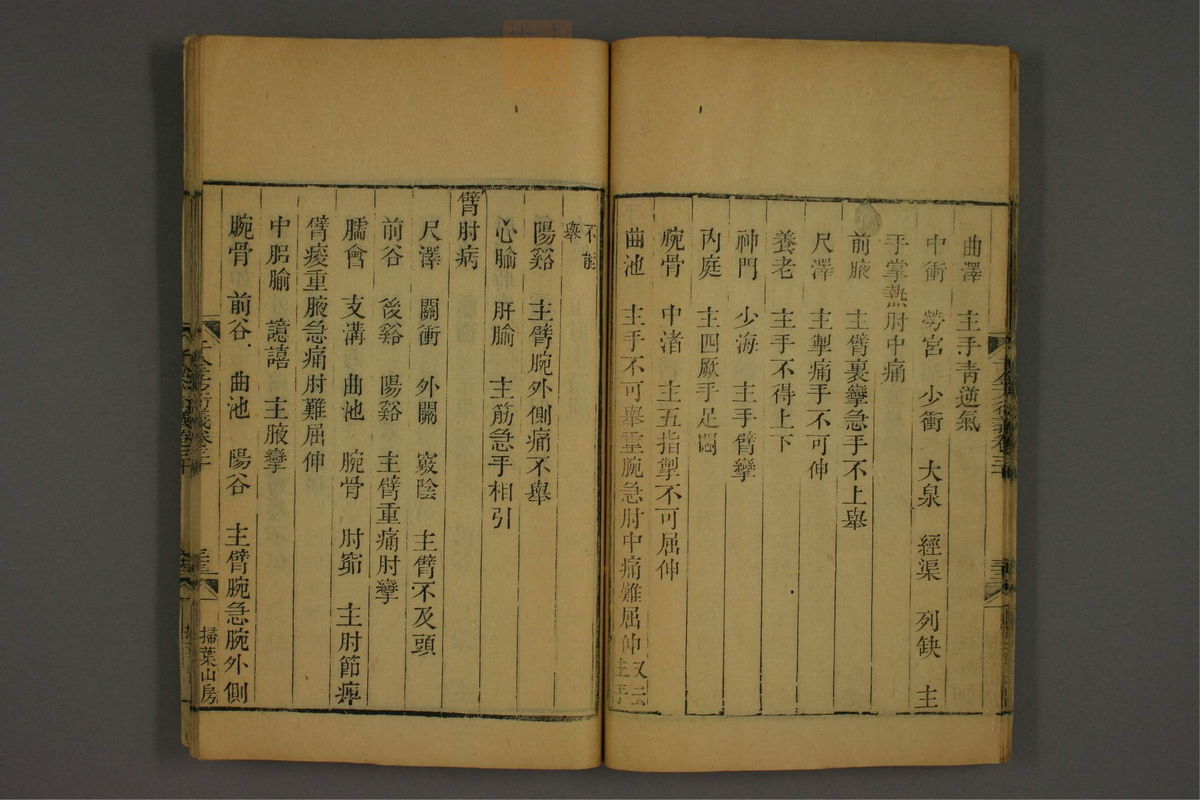 曲澤 主手靑逆氣
中衝 勞宮 少衝 大泉 經渠 列缺 主
手掌熱肘中痛
前腋 主臂裏攣急手不上舉
尺澤 主掣痛手不可伸
養老 主手不得上下
神門 少海 主手臂攣
內庭 主四厥手足悶
腕骨 中渚 主五指掣不可屈伸
曲池 主手不可舉重腕急肘中痛難屈伸又云主手
不能舉
陽谿 主臂腕外側痛不舉
心腧 肝腧 主筋急手相引
臂肘病
尺澤 關衝 外關 竅陰 主臂不及頭
前谷 後谿 陽谿 主臂重痛肘攣
臑會 支溝 曲池 腕骨 肘窌 主肘節痺
臂痠重腋急痛肘難屈伸
中膂腧 譩譆 主腋攣
腕骨 前谷 曲池 陽谷 主臂腕急腕外側
掃葉山房